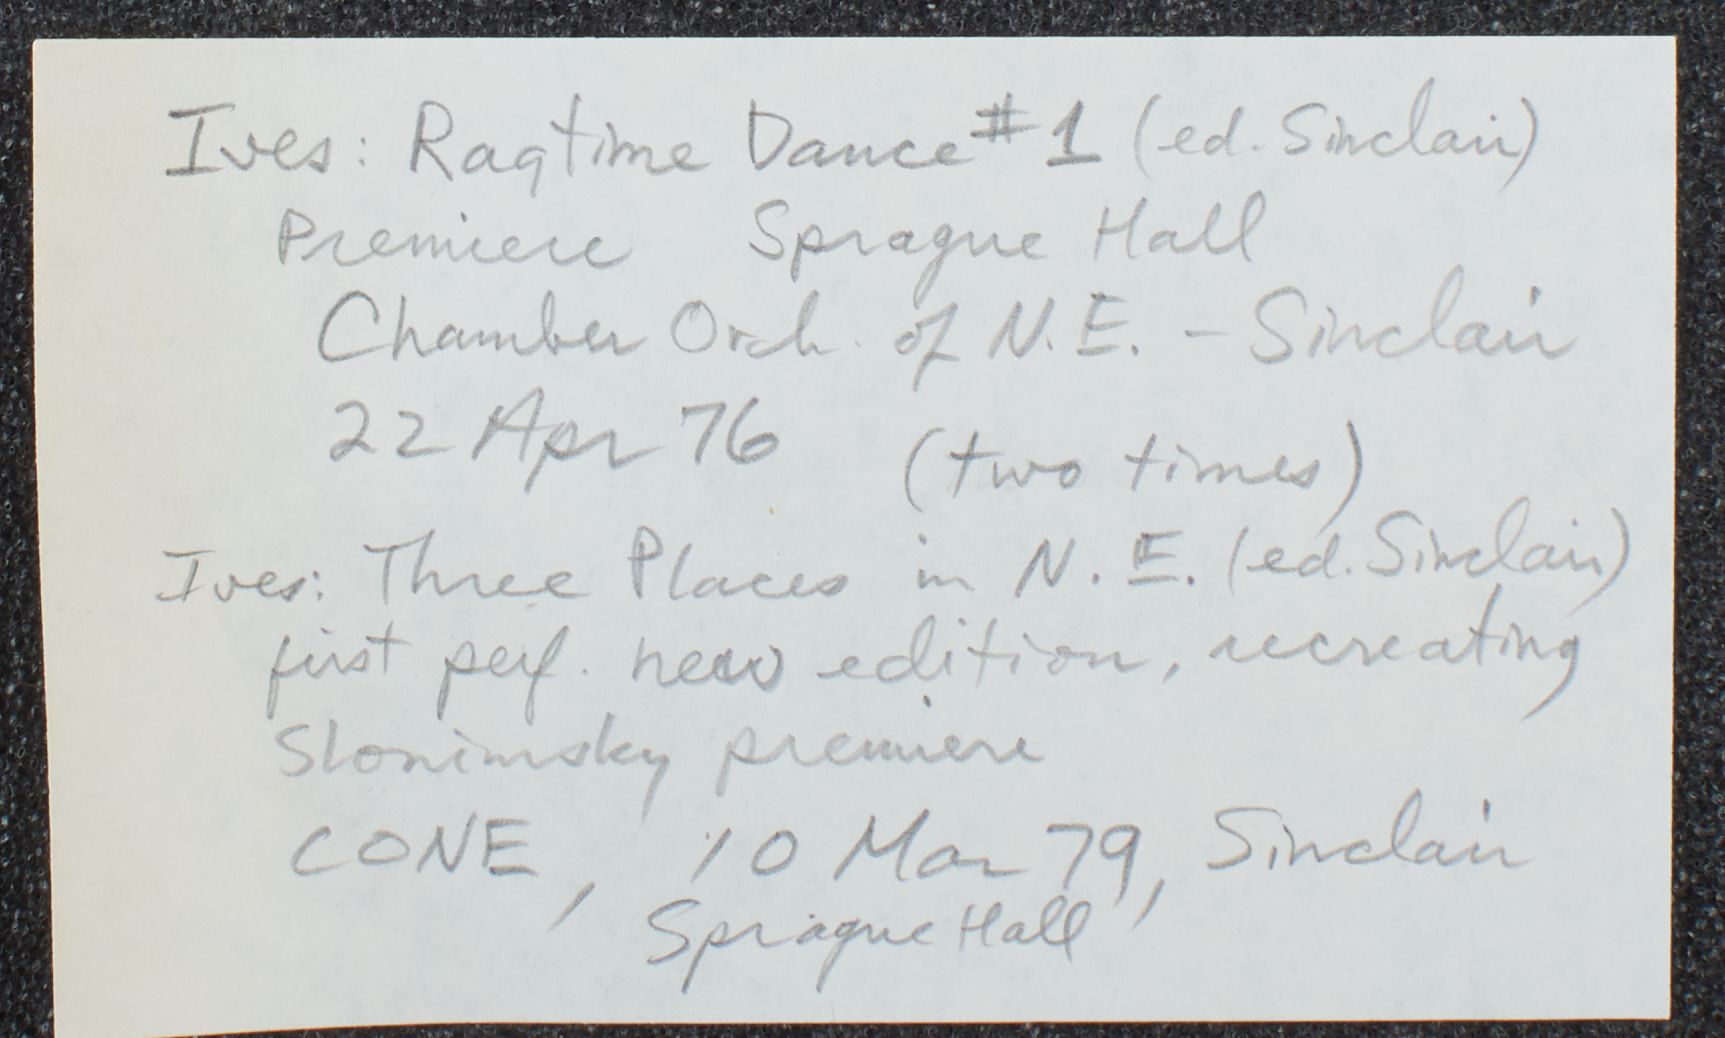 Ives: Ragtime Dance #1 (ed. Sinclair)
Premiere Sprague Hall
Chamber Orch. of N.E. - Sinclair
22 Apr 76 (two times)
Ives: Three Places in N.E. (ed. Sinclair)
first perf. new edition, recreating
Slonimsky premiere
CONE, 10 Mar 79, Sinclair
Sprague Hall